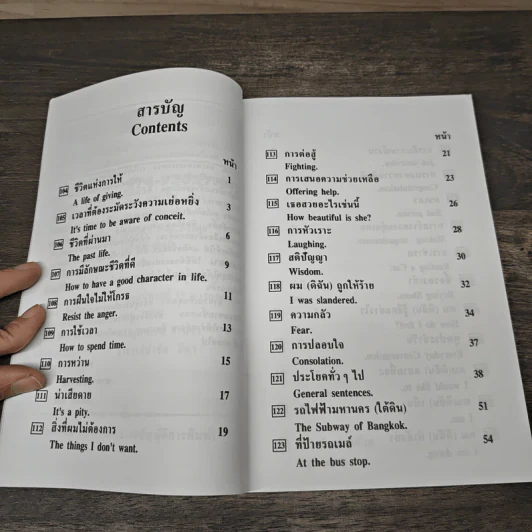 สารบัญ
Contents
หน้า
104 ชีวิตแห่งการให้ 1
A life of giving.
105 เวลาที่ต้องระมัดระวังความเย่อหยิ่ง 3
It's time to be aware of conceit.
106 ชีวิตที่ผ่านมา 6
The past life.
107 การมีลักษณะชีวิตที่ดี 9
How to have a good character in life.
108 การฝืนใจไม่ให้โกรธ 11
Resist the anger.
109 การใช้เวลา 13
How to spend time.
110 การหว่าน 15
Harvesting.
111 น่าเสียดาย 17
It's a pity.
112 สิ่งที่ผมไม่ต้องการ 19
The things I don't want.
หน้า
113 การต่อสู้ 21
Fighting.
114 การเสนอความช่วยเหลือ 23
Offering help.
115 เธอสวยอะไรเช่นนี้ 26
How beautiful is she?
116 การหัวเราะ 28
Laughing.
117 สติปัญญา 30
Wisdom.
118 ผม (ดิฉัน) ถูกให้ร้าย 32
I was slandered.
119 ความกลัว 34
Fear.
120 การปลอบใจ 37
Consolation.
121 ประโยคทั่ว ๆ ไป 38
General sentences.
122 รถไฟฟ้ามหานคร (ใต้ดิน) 51
The Subway of Bangkok.
123 ที่ป้ายรถเมล์ 54
At the bus stop.